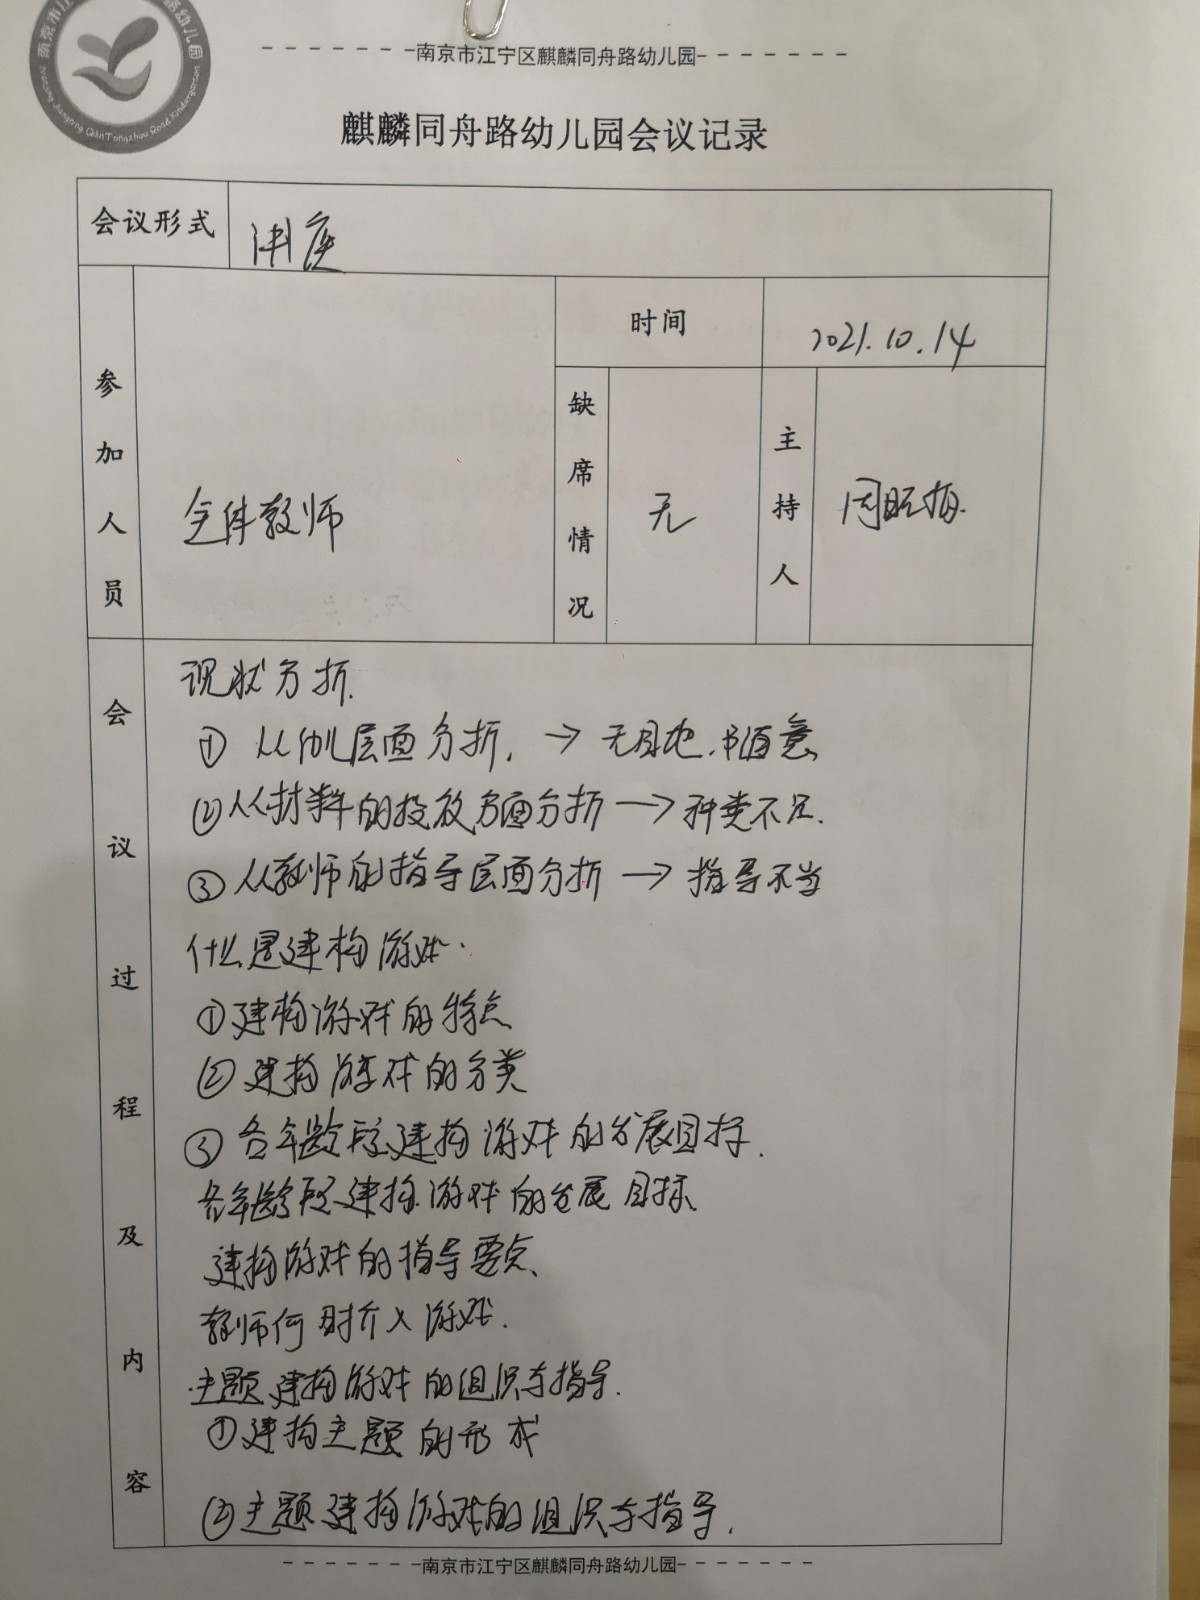 南京市江宁区麒麟同舟路幼儿园
Nanjing Jiangning Qilin Tongzhou Road Kindergarten
麒麟同舟路幼儿园会议记录
会议形式
讲座
参加人员
全体教师
时间
2021.10.14
缺席情况
无
主持人
周
会议过程及内容
现状分析.
① 从幼儿层面分析. → 无目地.随意
②从材料的投放方面分析 → 种类不足.
③从教师的指导层面分析 → 指导不当
什么是建构游戏.
①建构游戏的特点
②建构游戏的分类
③各年龄段建构游戏的发展目标.
各年龄段建构游戏的发展目标.
建构游戏的指导要点
教师何时介入游戏.
主题建构游戏的组织与指导.
①建构主题的形成
②主题建构游戏的组织与指导.
南京市江宁区麒麟同舟路幼儿园